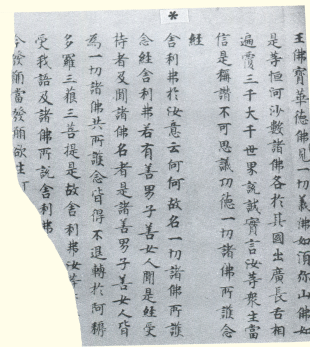 *
王佛寶華德佛見一切義佛如須弥山佛如
是等恒河沙數諸佛各於其國出廣長舌相
遍覆三千大千世界說誠實言汝等衆生當
信是稱讃不可思議功德一切諸佛所護念
經
舍利弗於汝意云何何故名一切諸佛所護
念經舍利弗若有善男子善女人聞是經受
持者及聞諸佛名者是諸善男子善女人皆
為一切諸佛共所護念皆得不退轉於阿耨
多羅三藐三菩提是故舍利弗汝等
受我語及諸佛所說舍利弗
今發願當發願欲生